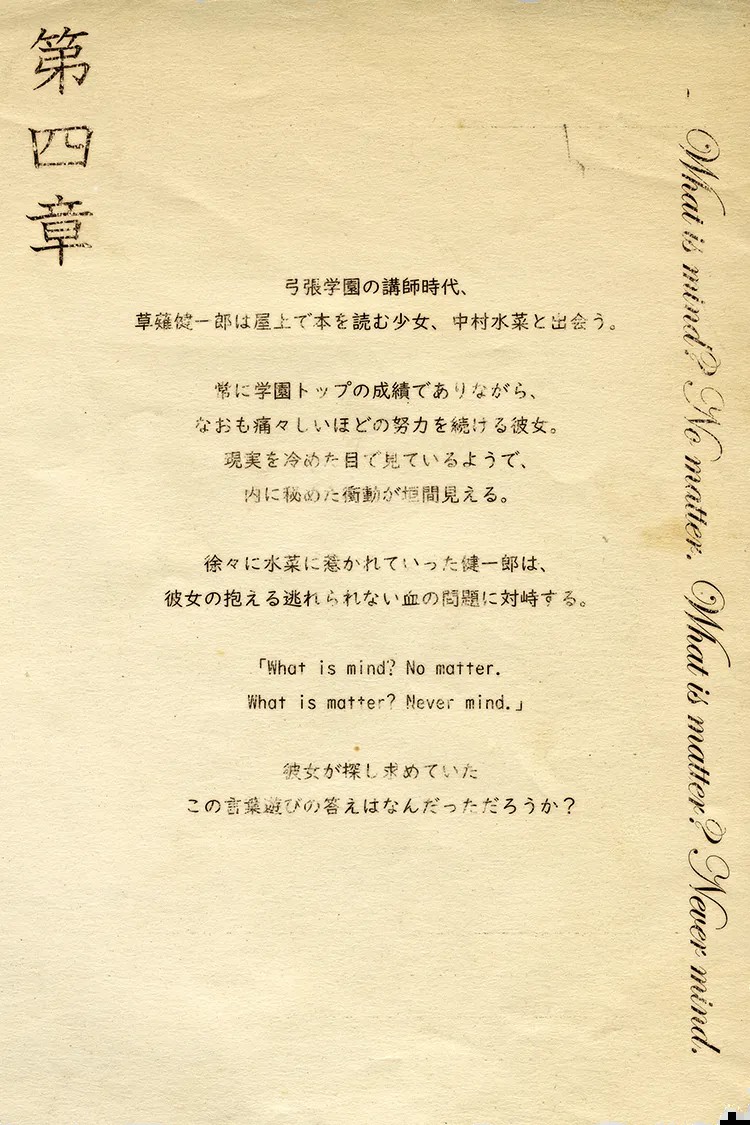 第四章
弓張学園の講師時代、
草薙健一郎は屋上で本を読む少女、中村水菜と出会う。
常に学園トップの成績でありながら、
なおも痛々しいほどの努力を続ける彼女。
現実を冷めた目で見ているようで、
内に秘めた衝動が垣間見える。
徐々に水菜に惹かれていった健一郎は、
彼女の抱える逃れられない血の問題に対峙する。
「What is mind? No matter.
What is matter? Never mind.」
彼女が探し求めていた
この言葉遊びの答えはなんだっただろうか？
- What is mind? No matter. What is matter? Never mind.